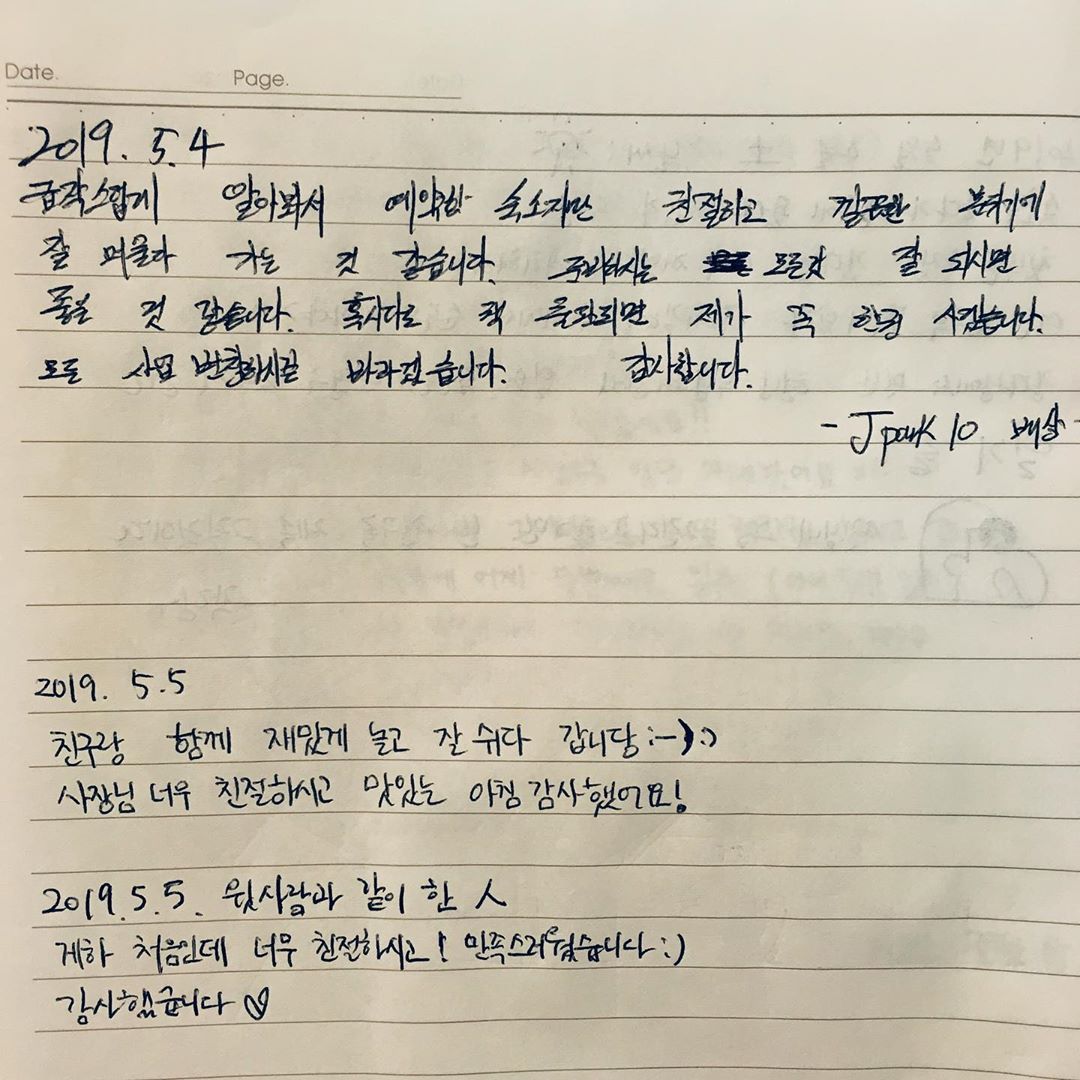 Date.
Page.
2019. 5. 4
급작스럽게 알아봐서 예약한 숙소지만 친절하고 깔끔한 분위기에
잘 머물다 가는 것 같습니다. 준비하시는 모든것 잘 되시면
좋을 것 같습니다. 혹시다로 책 출판되면 제가 꼭 한권 사겠습니다.
모든 사업 번창하시길 바라겠습니다. 감사합니다.
- J park 10 배상 -
2019. 5.5
친구랑 함께 재밌게 놀고 잘 쉬다 갑니당 :-) :)
사장님 너무 친절하시고 맛있는 아침 감사했어요!
2019. 5. 5. 윗사람과 같이 한 人
게하 처음인데 너무 친절하시고! 만족스러웠습니다 :)
감사했습니다 ♡